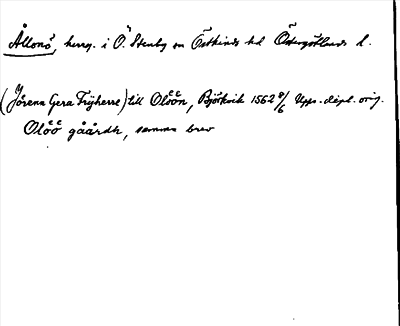 Ållonö, herrg. i Ö. Stenby sn Östkinds hd Östergötlands l.
(Jörena Gera Frijherre) till Olöön, Björkvik 1562 8/6 Upps. dipl. orig.
Olöö gåårdh, samma brev